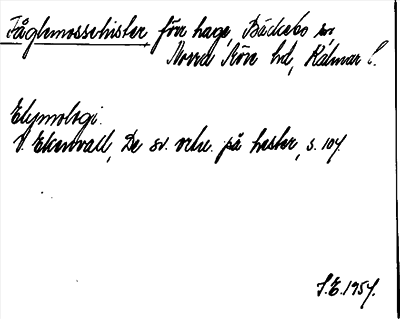 Fåglemossehister, förr hage, Bäckebo sn,
Norra Möre hd, Kalmar l.
Etymologi.
V. Ekenvall, De sv. ortn. på hester, s. 107.
S.E. 1957.